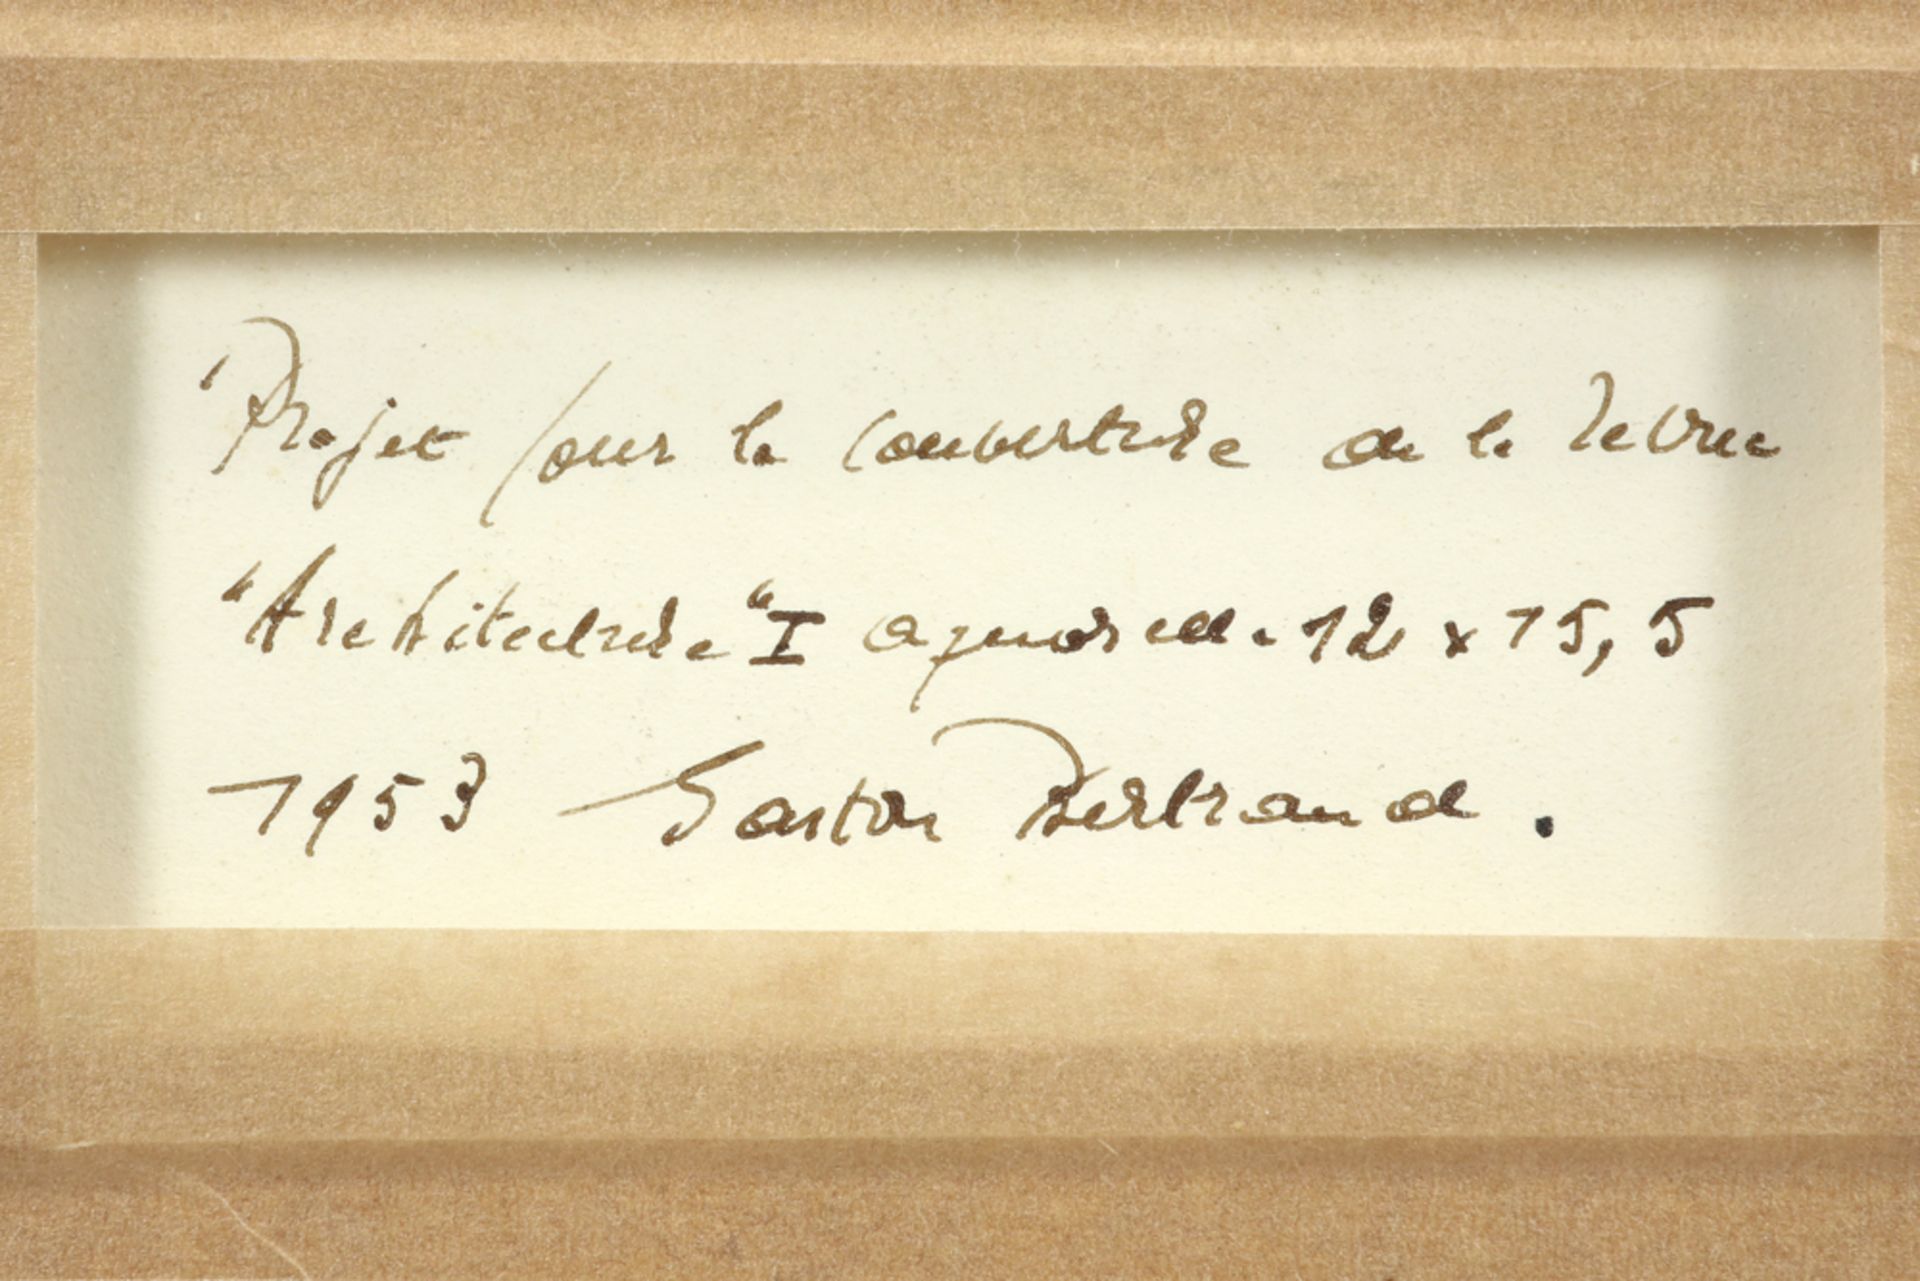 Projet pour la couverture de la revue
"Architecture" I aquarelle. 12 x 15,5
1953 Gaston Bertrand.